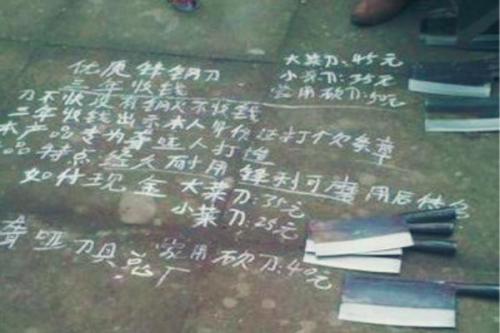 优质锋钢刀
三年收钱
大菜刀:45元
小菜刀:35元
家用砍刀:50元
刀不快没有钢火不收钱
三年收钱出示本人身份证打欠条章
本产品专为聋哑人打造
品特点经久耐用锋利可磨用后体会
如付现金大菜刀:35元
小菜刀:25元
家用砍刀:40元
聋哑刀具总厂